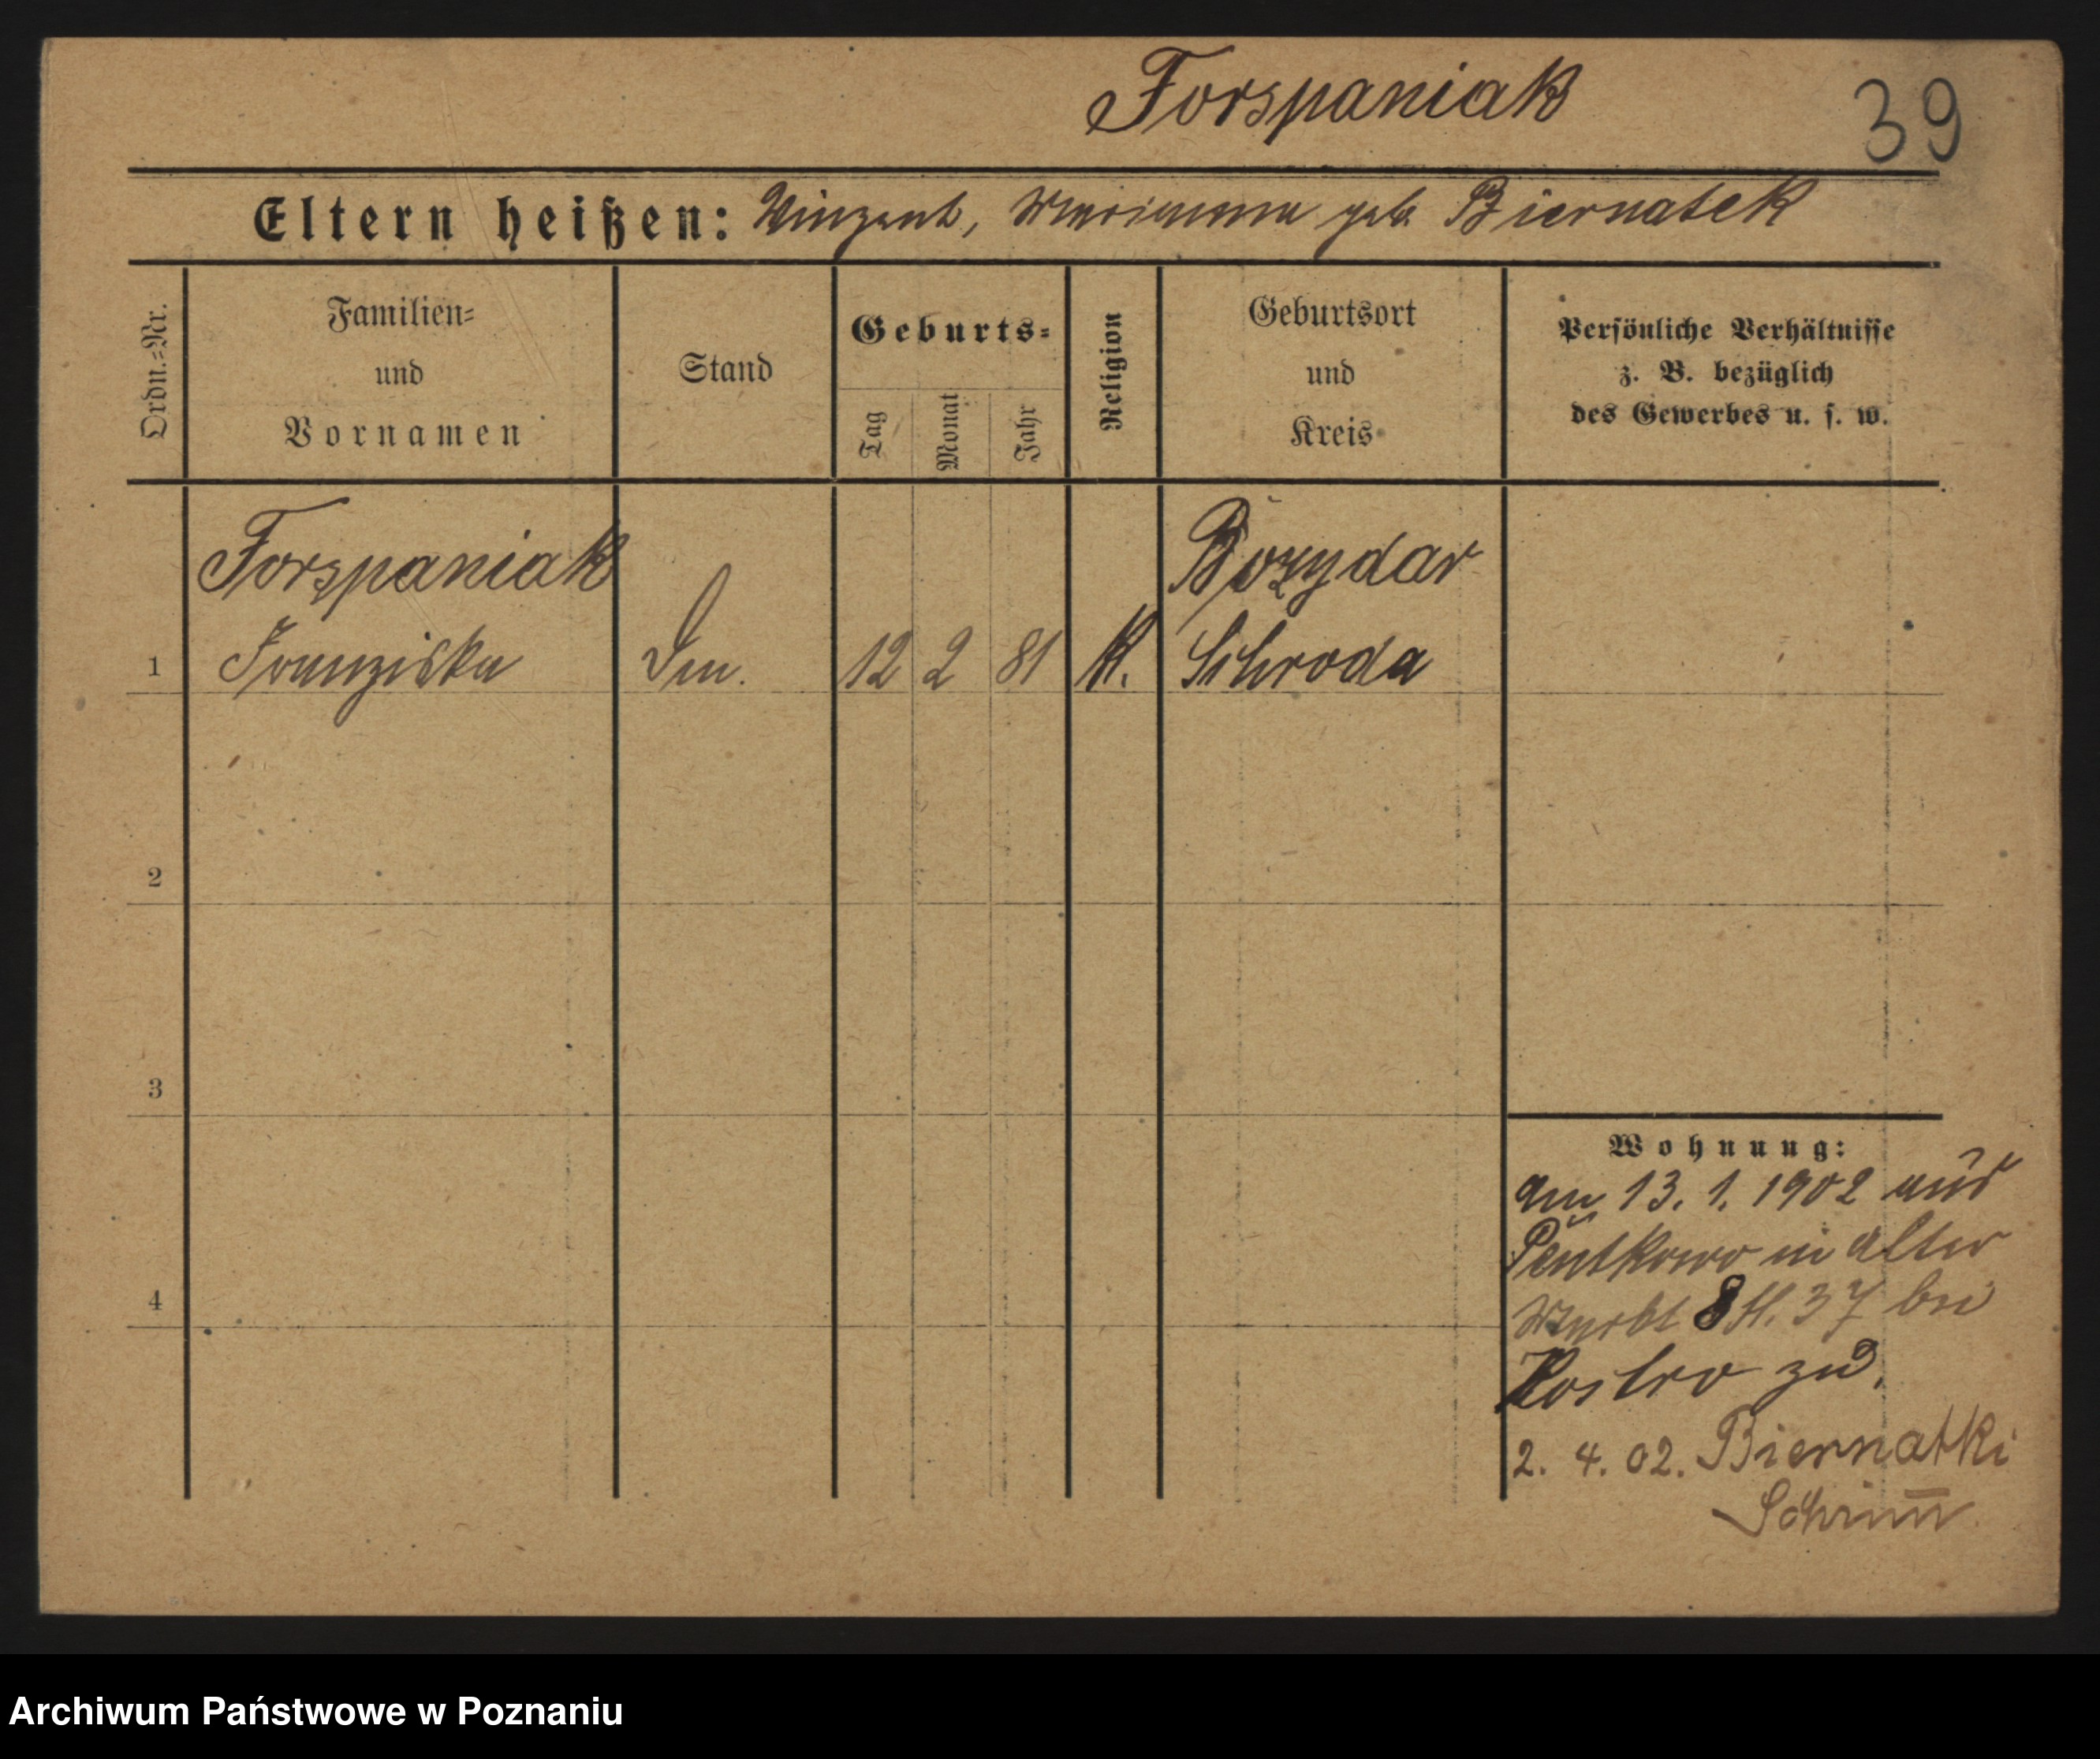 Forspaniak
39
Eltern heißen: Vinzent, Marianna geb. Biernatek
Ordn.=Nr.
Familien=
und
Vornamen
Stand
Geburts=
Tag
Monat
Jahr
Religion
Geburtsort
und
Kreis
Persönliche Verhältnisse
z. B. bezüglich
des Gewerbes u. s. w.
Forspaniak
Bozydar
1 Franziska 12 2 81 K. Schroda
2
3
4
Wohnung:
am 13. 1. 1902 aus
Pentkowo in alter
Markt 37 bei
Kostro zu.
2. 4. 02. Biernatki
Schrim̅
Archiwum Państwowe w Poznaniu